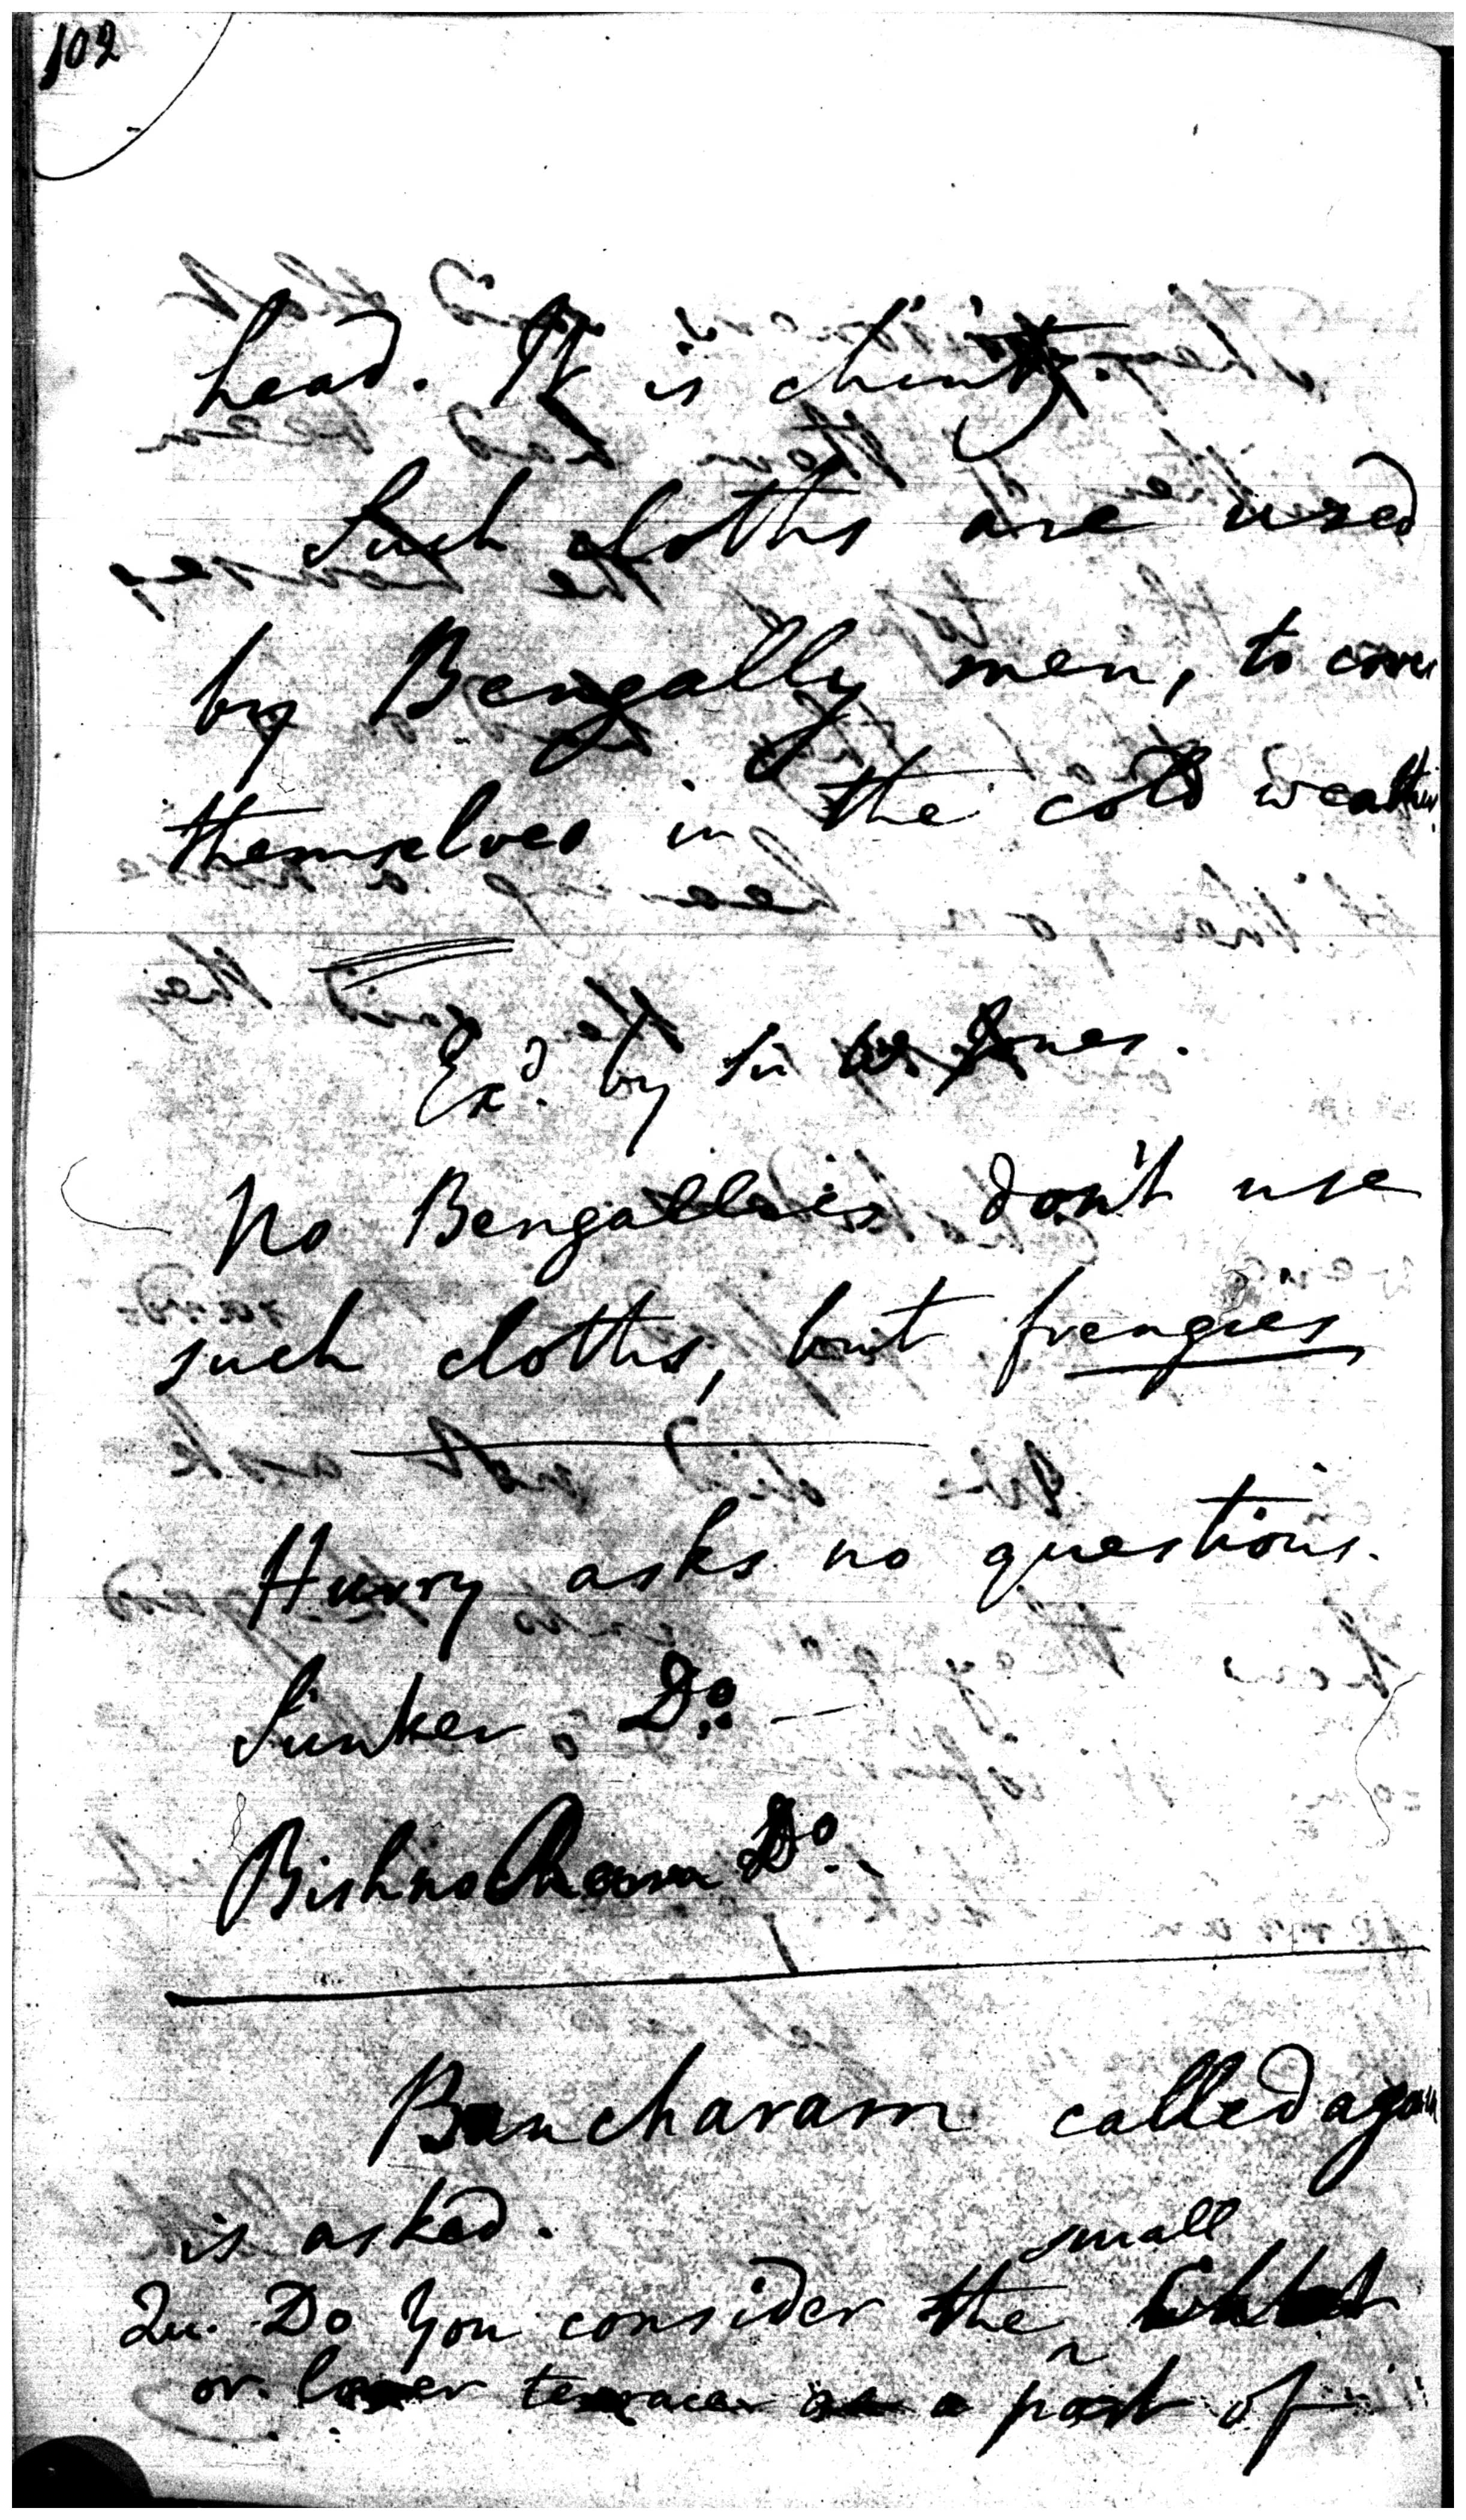 102
head. It is chintz
Such cloths are used
by Bengally men, to cover
themselves in the cold weather.
Exd. by Sir W Jones.
No Bengallies don't use
such cloths, but frengies
Hurry asks no questions.
Sunker, Do. —
Bishno Do.
Bancharam called again
is asked.
small
Qu. Do you consider the
or lower terrace as a part of